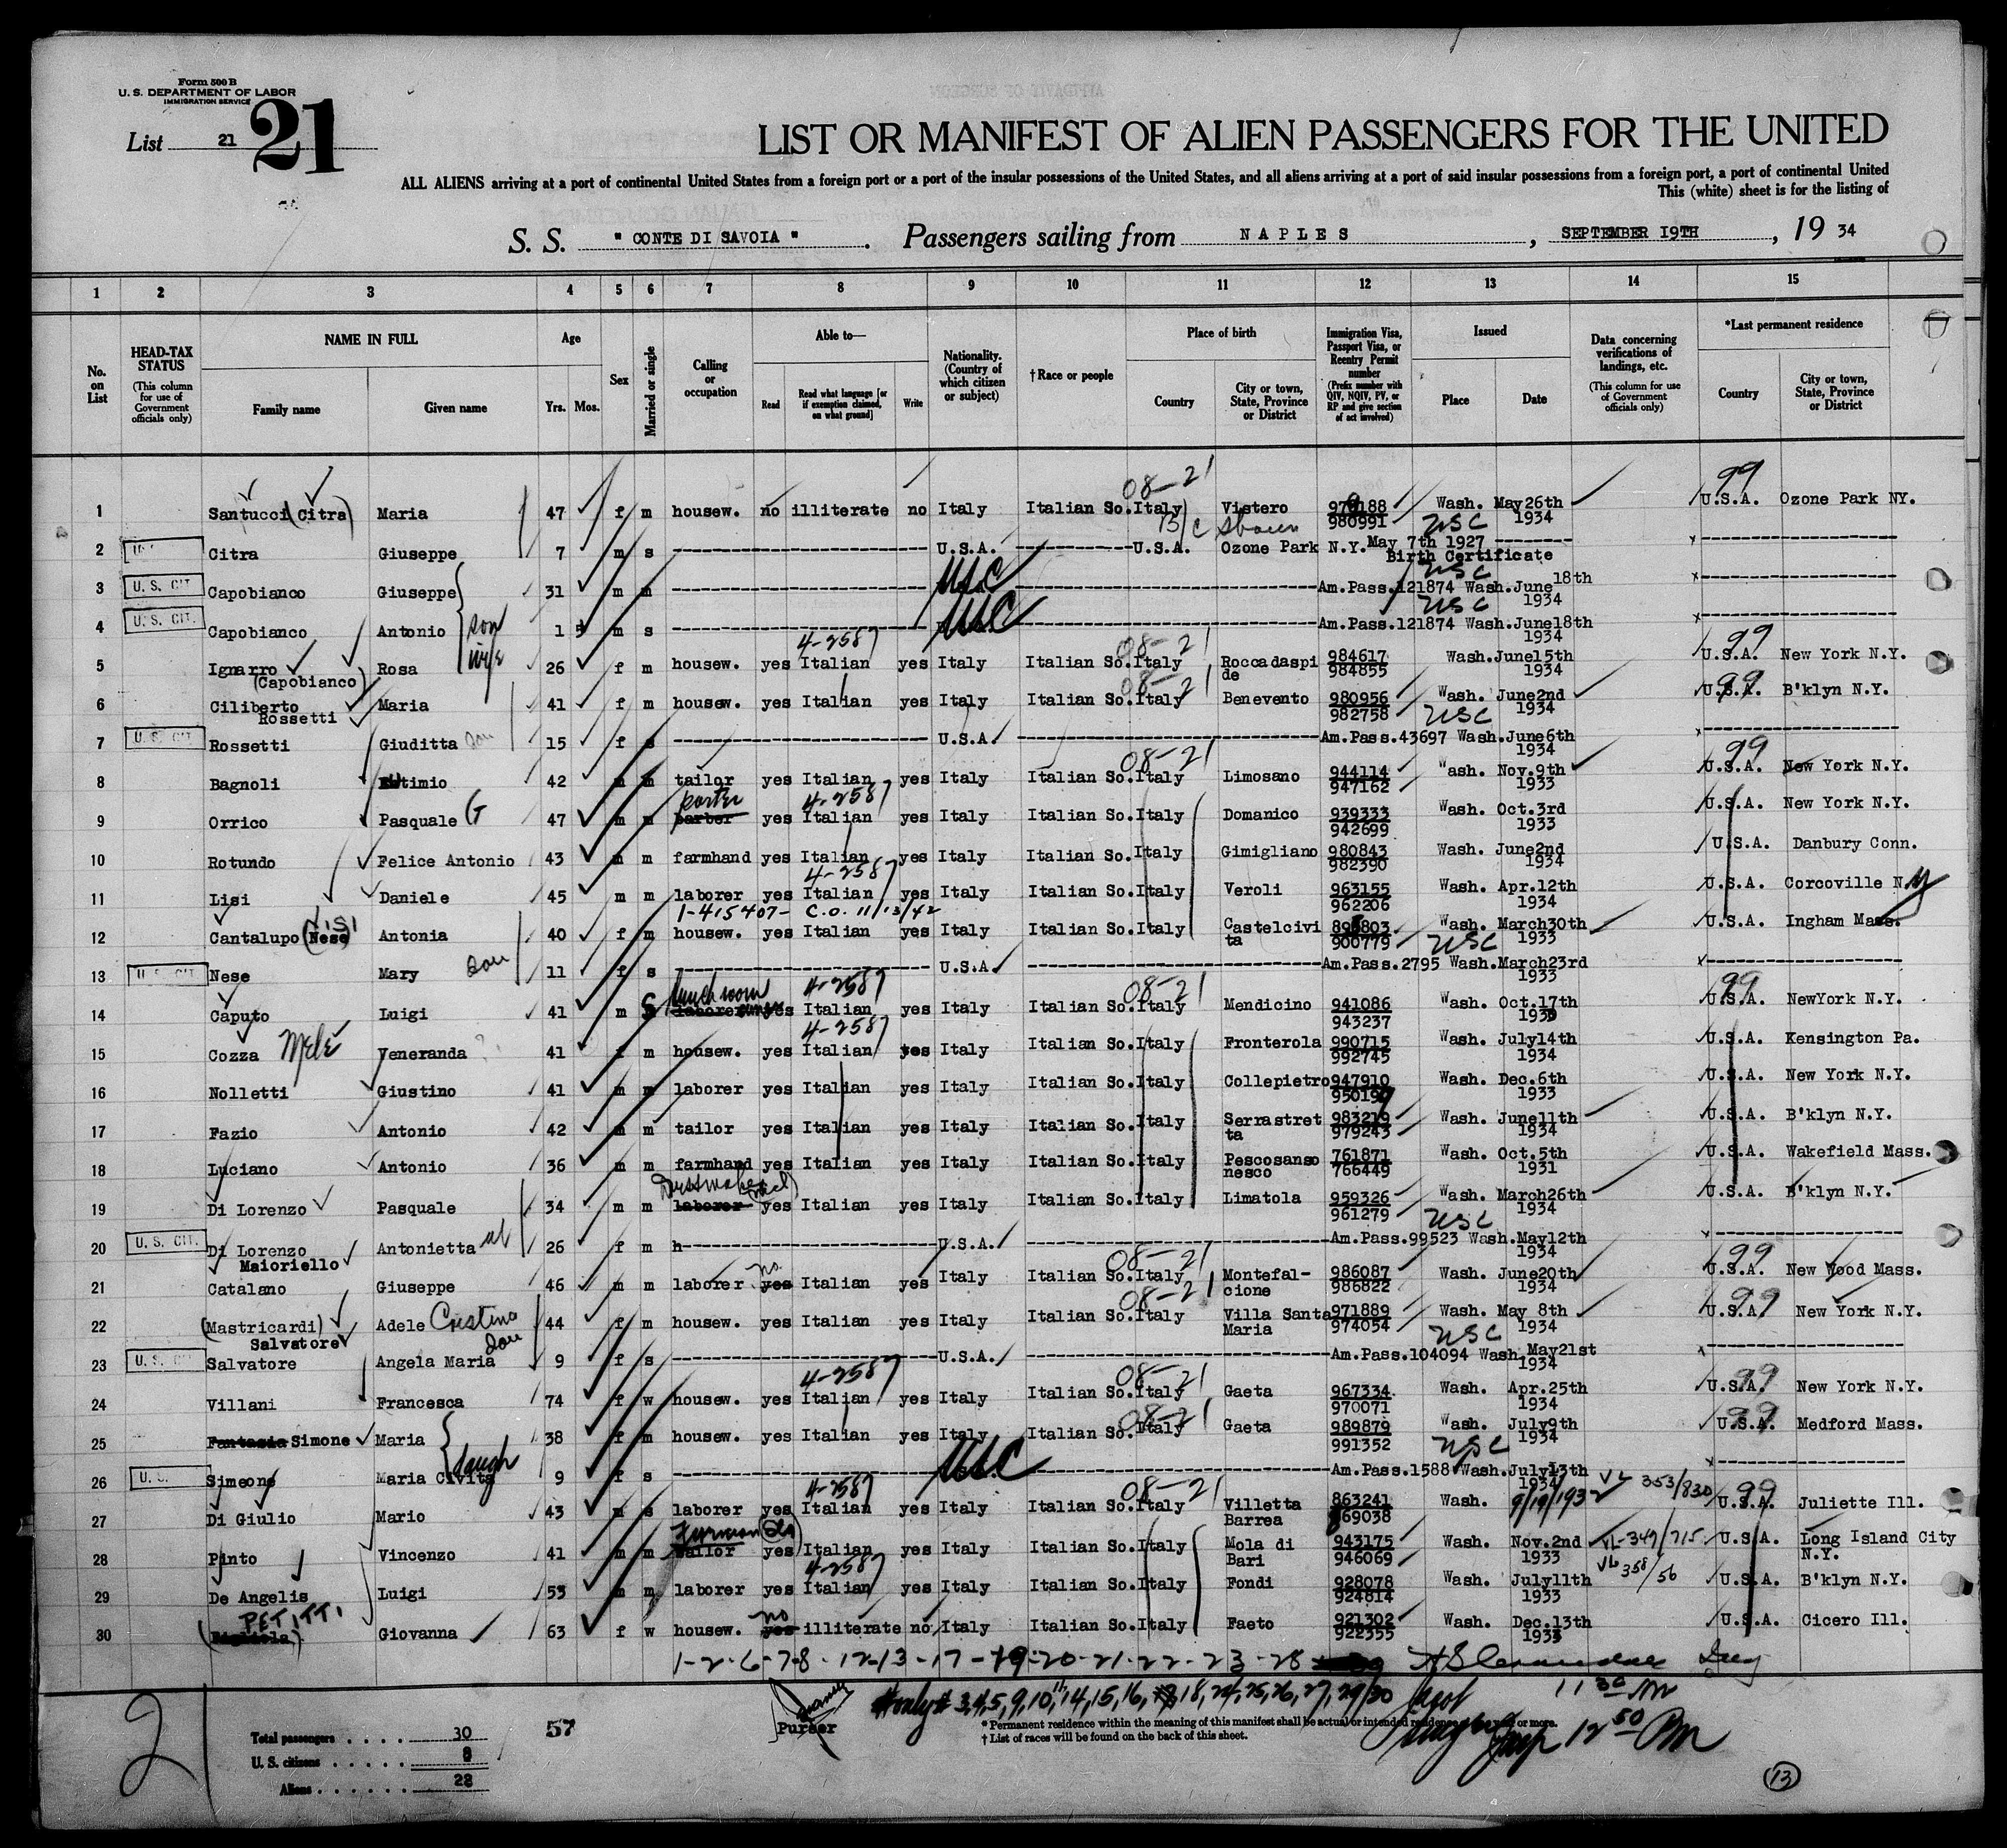 Form 500 B
U. S. DEPARTMENT OF LABOR
IMMIGRATION SERVICE
List 21 21
LIST OR MANIFEST OF ALIEN PASSENGERS FOR THE UNITED
ALL ALIENS arriving at a port of continental United States from a foreign port or a port of the insular possessions of the United States, and all aliens arriving at a port of said insular possessions from a foreign port, a port of continental United
This (white) sheet is for the listing of
S. S. " CONTE DI SAVOIA " . Passengers sailing from NAPLES , SEPTEMBER 19TH , 19 34
1 2 3 4 5 6 7 8 9 10 11 12 13 14 15
No. on List
HEAD-TAX STATUS (This column for use of Government officials only)
NAME IN FULL Family name Given name
Age Yrs. Mos.
Sex
Married or single
Calling or occupation
Able to— Read Read what language [or if exemption claimed, on what ground] Write
Nationality. (Country of which citizen or subject)
†Race or people
Place of birth Country City or town, State, Province or District
Immigration Visa, Passport Visa, or Reentry Permit number (Prefix number with QIV, NQIV, PV, or RP and give section of act involved)
Issued Place Date
Data concerning verifications of landings, etc. (This column for use of Government officials only)
*Last permanent residence Country City or town, State, Province or District
08-21 99
1 Santucci (Citra) Maria 47 f m housew. no illiterate no Italy Italian So. Italy Vistero 980991 Wash. May 26th 1934 U.S.A. Ozone Park NY.
B/C shown USC
2 Citra Giuseppe 7 m s U.S.A. U.S.A. Ozone Park N.Y. May 7th 1927 Birth Certificate
3 U. S. CIT. Capobianco Giuseppe 31 m m USC Am.Pass.121874 Wash. June 18th 1934 USC
4 U. S. CIT. Capobianco Antonio son 1 m s USC Am.Pass.121874 Wash. June 18th 1934 USC
4-2587 08-21 99
5 Ignarro (Capobianco) Rosa wife 26 f m housew. yes Italian yes Italy Italian So. Italy Roccadaspide 984617 984855 Wash. June 15th 1934 U.S.A. New York N.Y.
08-21 99
6 Ciliberto Rossetti Maria 41 f m housew. yes Italian yes Italy Italian So. Italy Benevento 980956 982758 Wash. June 2nd 1934 U.S.A. B'klyn N.Y.
USC
7 U. S. CIT Rossetti Giuditta dau 15 f s U.S.A. Am.Pass.43697 Wash. June 6th 1934
08-21 99
8 Bagnoli Eutimio 42 m m tailor yes Italian yes Italy Italian So. Italy Limosano 944114 947162 Wash. Nov. 9th 1933 U.S.A. New York N.Y.
porter 4-2587
9 Orrico Pasquale G 47 m m barber yes Italian yes Italy Italian So. Italy Domanico 939333 942699 Wash. Oct. 3rd 1933 U.S.A. New York N.Y.
10 Rotundo Felice Antonio 43 m m farmhand yes Italian yes Italy Italian So. Italy Gimigliano 980843 982390 Wash. June 2nd 1934 U.S.A. Danbury Conn.
4-2587
11 Lisi Daniele 45 m m laborer yes Italian yes Italy Italian So. Italy Veroli 963155 962206 Wash. Apr. 12th 1934 U.S.A. Corcoville NY
1-415407- C.O. 11/13/42
12 Cantalupo (Nese) Antonia 40 f m housew. yes Italian yes Italy Italian So. Italy Castelcivita 900779 Wash. March 30th 1933 U.S.A. Ingham Mass.
USC
13 U. S. CIT Nese Mary dau 11 f s U.S.A. Am.Pass.2795 Wash. March 23rd 1933
lunch room 4-2587 08-21 99
14 Caputo Luigi 41 m S laborer yes Italian yes Italy Italian So. Italy Mendicino 941086 943237 Wash. Oct. 17th U.S.A. NewYork N.Y.
4-2587
15 Cozza Mele Veneranda 41 f m housew. yes Italian yes Italy Italian So. Italy Fronterola 990715 992745 Wash. July 14th 1934 U.S.A. Kensington Pa.
16 Nolletti Giustino 41 m m laborer yes Italian yes Italy Italian So. Italy Collepietro 947910 950197 Wash. Dec. 6th 1933 U.S.A. New York N.Y.
17 Fazio Antonio 42 m m tailor yes Italian yes Italy Italian So. Italy Serrastretta 983219 979243 Wash. June 11th 1934 U.S.A. B'klyn N.Y.
18 Luciano Antonio 36 m m farmhand yes Italian yes Italy Italian So. Italy Pescosansonesco 761871 766449 Wash. Oct. 5th 1931 U.S.A. Wakefield Mass.
Dressmaker
19 Di Lorenzo Pasquale 34 m m laborer yes Italian yes Italy Italian So. Italy Limatola 959326 961279 Wash. March 26th 1934 U.S.A. B'klyn N.Y.
USC
20 U. S. CIT. Di Lorenzo Antonietta 26 f m h U.S.A. Am.Pass.99523 Wash. May 12th 1934
no 08-21 99
21 Maioriello Catalano Giuseppe 46 m m laborer yes Italian yes Italy Italian So. Italy Montefalcione 986087 986822 Wash. June 20th 1934 U.S.A. New Wood Mass.
08-21 99
22 (Mastricardi) Salvatore Adele Cristina 44 f m housew. yes Italian yes Italy Italian So. Italy Villa Santa Maria 971889 974054 Wash. May 8th 1934 U.S.A. New York N.Y.
USC
23 U. S. CIT Salvatore Angela Maria dau 9 f s U.S.A. Am.Pass.104094 Wash. May 21st 1934
4-2587 08-21 99
24 Villani Francesca 74 f w housew. yes Italian yes Italy Italian So. Italy Gaeta 967334 970071 Wash. Apr. 25th 1934 U.S.A. New York N.Y.
08-21 99
25 Fantasia Simone Maria 38 f m housew. yes Italian yes Italy Italian So. Italy Gaeta 989879 991352 Wash. July 9th 1934 U.S.A. Medford Mass.
USC
26 U. S. Simeone Maria Civita daugh 9 f s USC Am.Pass.1588 Wash. July 13th 1934
4-2587 08-21 VL 353/830 99
27 Di Giulio Mario 43 m s laborer yes Italian yes Italy Italian So. Italy Villetta Barrea 863241 869038 Wash. 9/19/1932 U.S.A. Juliette Ill.
28 Pinto Vincenzo 41 m m tailor yes Italian yes Italy Italian So. Italy Mola di Bari 943175 946069 Wash. Nov. 2nd 1933 VL-349/715 U.S.A. Long Island City N.Y.
4-2587
29 De Angelis Luigi 53 m m laborer yes Italian yes Italy Italian So. Italy Fondi 928078 924814 Wash. July 11th 1933 VL 358/56 U.S.A. B'klyn N.Y.
PETITTI no
30 Giovanna 63 f w housew. yes illiterate no Italy Italian So. Italy Faeto 921302 922355 Wash. Dec. 13th 1933 U.S.A. Cicero Ill.
1-2-6-7-8-12-13-17-19-20-21-22-23-28
only # 3,4,5,9,10,11,14,15,16,18,24,25,26,27,29/30
11 30 AM
12 50 PM
Purser
* Permanent residence within the meaning of this manifest shall be actual or intended residence of one year or more.
† List of races will be found on the back of this sheet.
Total passengers 30
U. S. citizens 8
Aliens 28
57
2
13